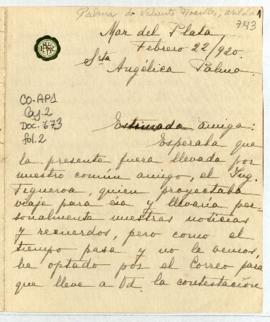 Palma, de
743
Mar del Plata,
Febrero 22/920.
Srta
Angélica Palma.
CO-AP1
Caj. 2
Doc. 743
fol. 2
Estimada amiga:
Esperaba que
la presente fuera llevada por
nuestro común amigo, el Ing.
Figueroa, quien proyectaba
viaje para esa y llevaría per-
sonalmente nuestras noticias
y recuerdos, pero como el
tiempo pasa y no le vemos,
he optado por el Correo para
que lleve a Ud. la contestación